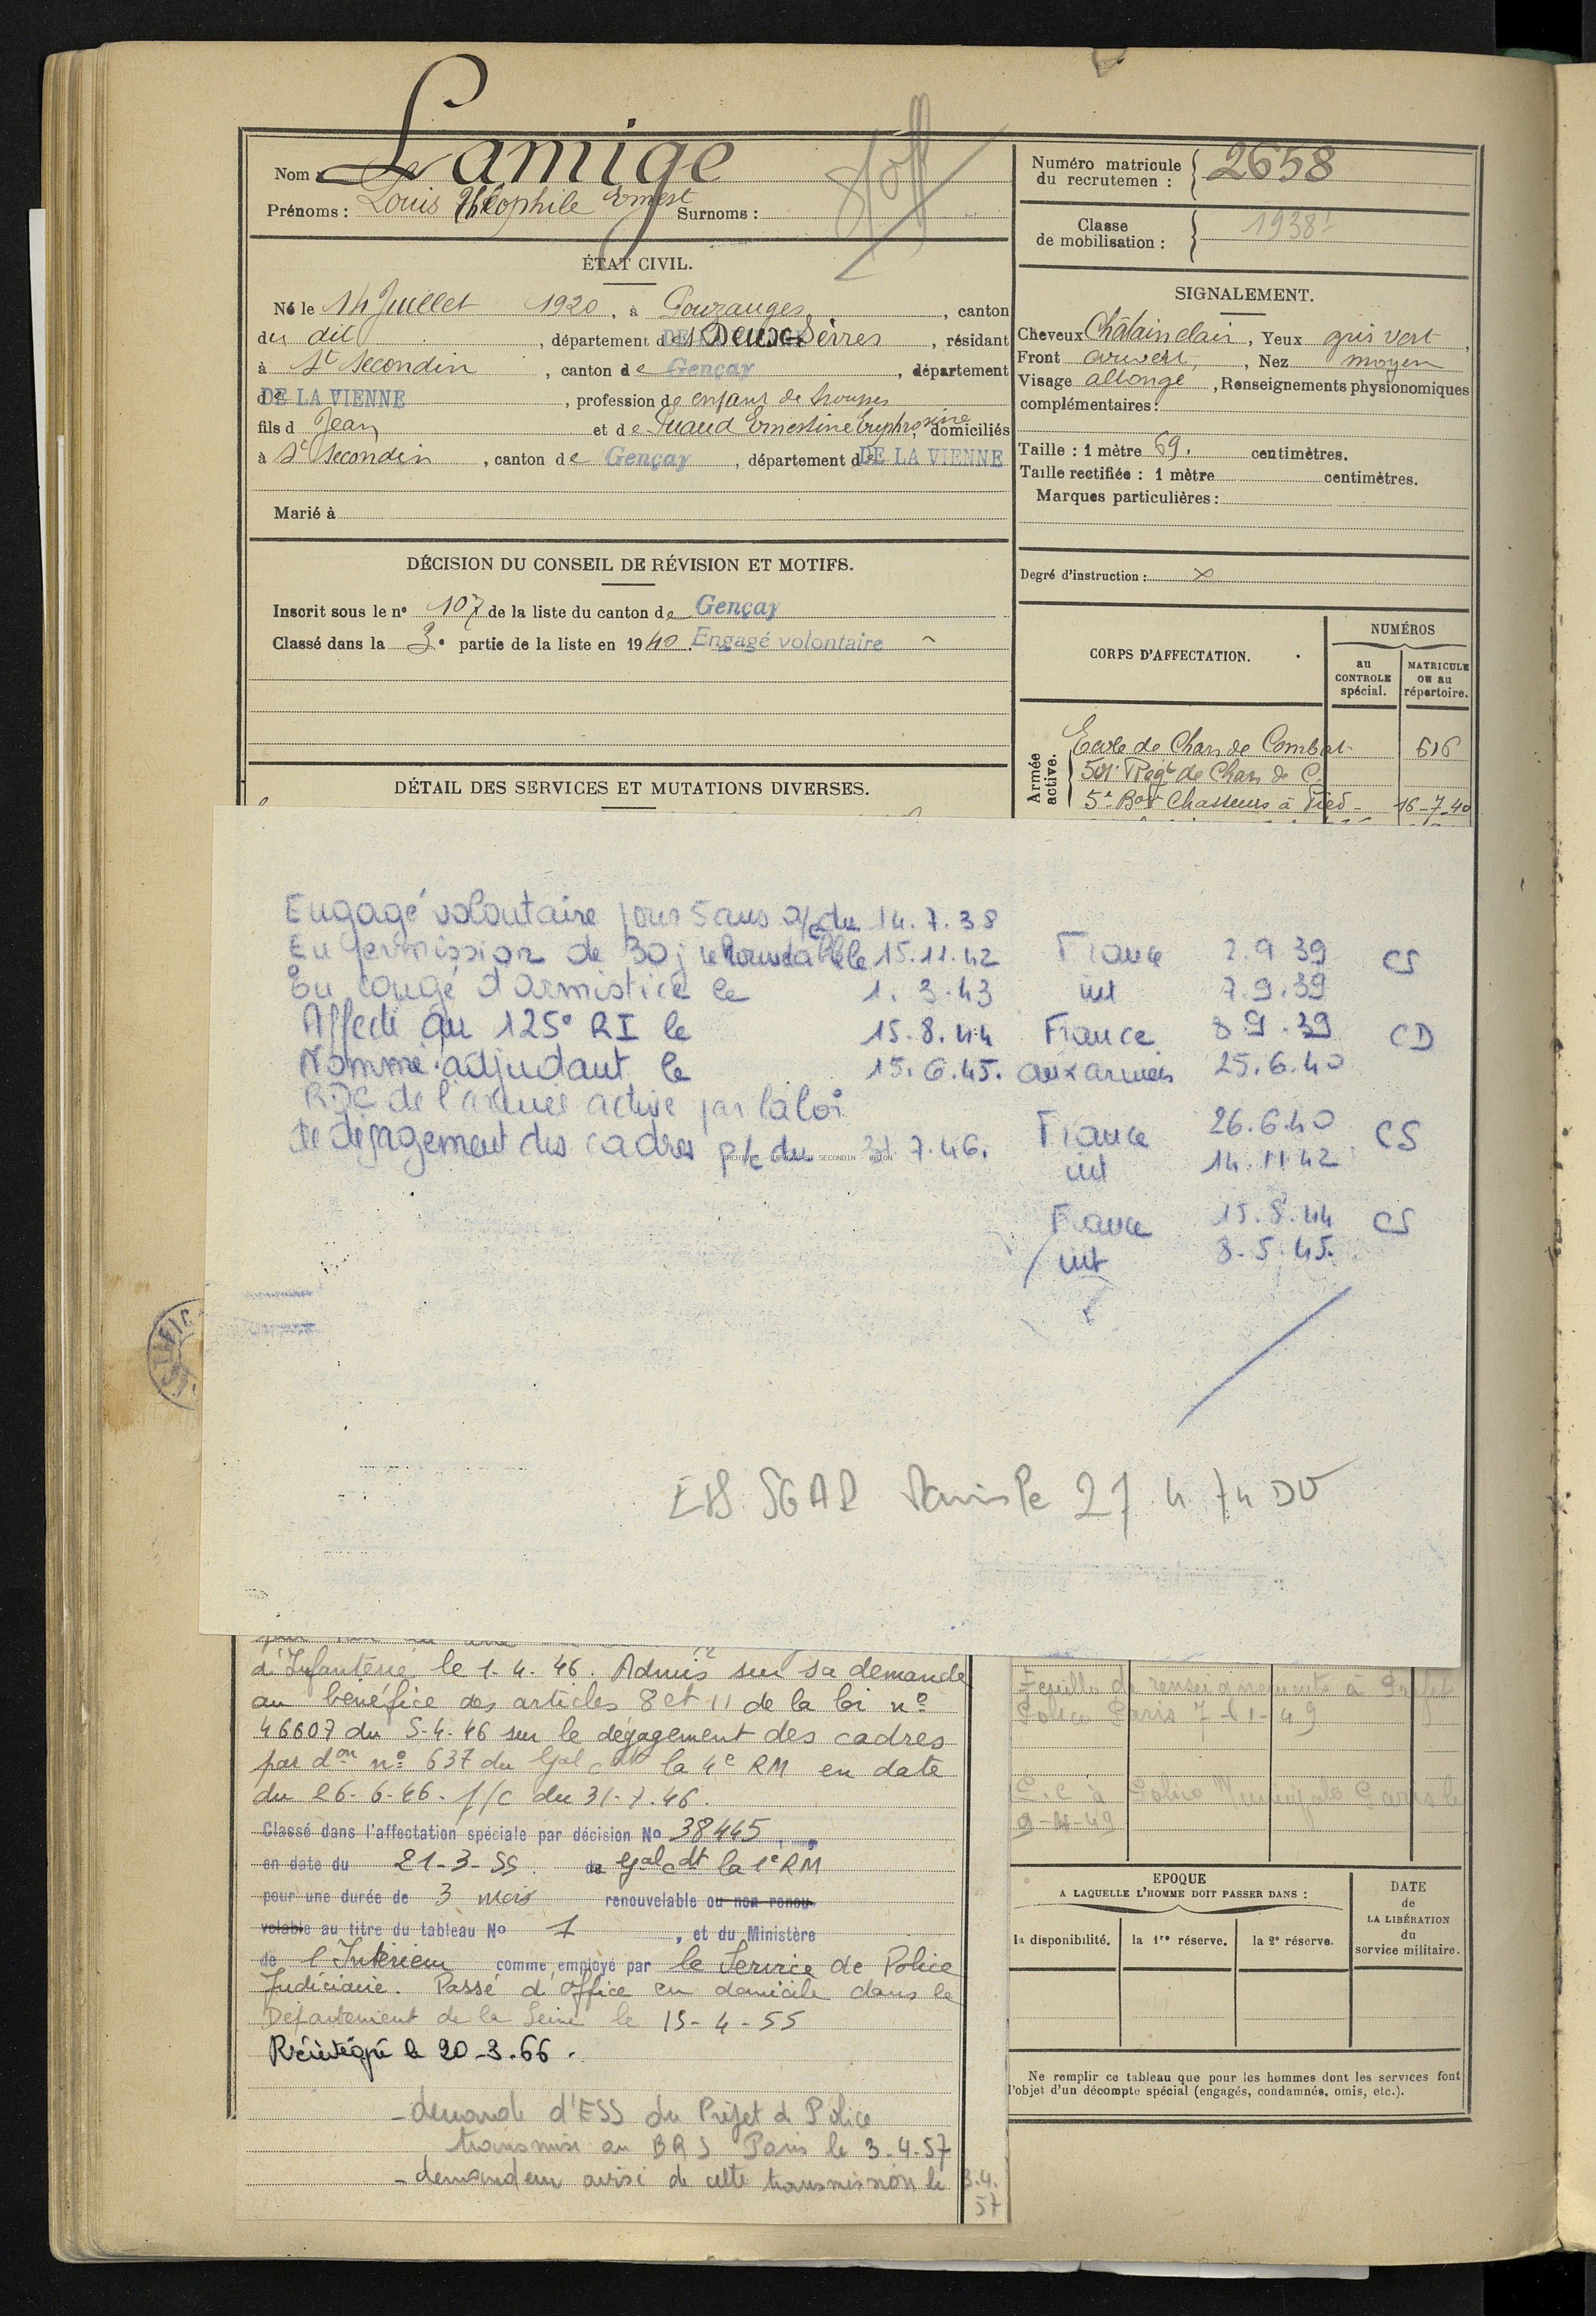 Nom : Lamige
Prénoms : Louis Théophile Ernest Surnoms :
S/off
ÉTAT CIVIL.
Né le 14 Juillet 1920, à Pouzauges, canton
du dit, département des Deux-Sèvres, résidant
à St Secondin, canton de Gençay, département
DE LA VIENNE, profession de enfant de troupes
fils d Jean et de Puaud Ernestine Euphrosine domiciliés
à St Secondin, canton de Gençay, département de DE LA VIENNE
Marié à
DÉCISION DU CONSEIL DE RÉVISION ET MOTIFS.
Inscrit sous le n° 107 de la liste du canton de Gençay
Classé dans la 3e partie de la liste en 1940 Engagé volontaire
DÉTAIL DES SERVICES ET MUTATIONS DIVERSES.
Numéro matricule du recrutemen : 2658
Classe de mobilisation : 1938
SIGNALEMENT.
Cheveux Châtain clair, Yeux gris vert,
Front ouvert, Nez moyen
Visage allongé, Renseignements physionomiques
complémentaires :
Taille : 1 mètre 69. centimètres.
Taille rectifiée : 1 mètre centimètres.
Marques particulières :
Degré d'instruction : x
CORPS D'AFFECTATION.
NUMÉROS
au CONTROLE spécial.
MATRICULE ou au répertoire.
Armée active.
Ecole de Chars de Combat 616
501e Régt de Chars de C.
5e Bon Chasseurs à Pied - 16-7-40
Engagé volontaire pour 5 ans a/c du 14.7.38
En permission de 30 j renouvelable le 15.11.42
En congé d'armistice le 1.3.43
Affecté au 125° RI le 15.8.44
Nommé adjudant le 15.6.45.
RDC de l'armée active par la loi
de dégagement des cadres p/c du 31.7.46.
France 2.9.39 CS
int 7.9.39
France 8.9.39 CD
aux armées 25.6.40
France 26.6.40 CS
int 14.11.42
France 15.8.44 CS
int 8.5.45.
ARCHIVES - USSON ST SECONDIN - BRION
Paris le 27.4.74 DV
d'Infanterie le 1.4.46. Admis sur sa demande
au bénéfice des articles 8 et 11 de la loi n°
46607 du 5-4-46 sur le dégagement des cadres
par don n° 637 du Gal cdt la 4e RM en date
du 26-6-46. p/c du 31-7-46.
Classé dans l'affectation spéciale par décision No 38445
en date du 21-3-55. de Gal cdt la 1e RM
pour une durée de 3 mois renouvelable ou non renou-
velable au titre du tableau No 1, et du Ministère
de l'Intérieur comme employé par le Service de Police
Judiciaire. Passé d'office en domicile dans le
Département de la Seine le 15-4-55
Réintégré le 20-3-66.
- demande d'ESS du Préfet de Police
transmise au BRS Paris le 3-4-57
- demandeur avisé de cette transmission le 3.4.57
Feuille de renseignements à Préfet
Police Paris 7-1-49
E.C à Police Municipale Paris le
9-4-49
EPOQUE
A LAQUELLE L'HOMME DOIT PASSER DANS :
la disponibilité.
la 1re réserve.
la 2e réserve.
DATE
de
LA LIBÉRATION
du
service militaire.
Ne remplir ce tableau que pour les hommes dont les services font
l'objet d'un décompte spécial (engagés, condamnés, omis, etc.).